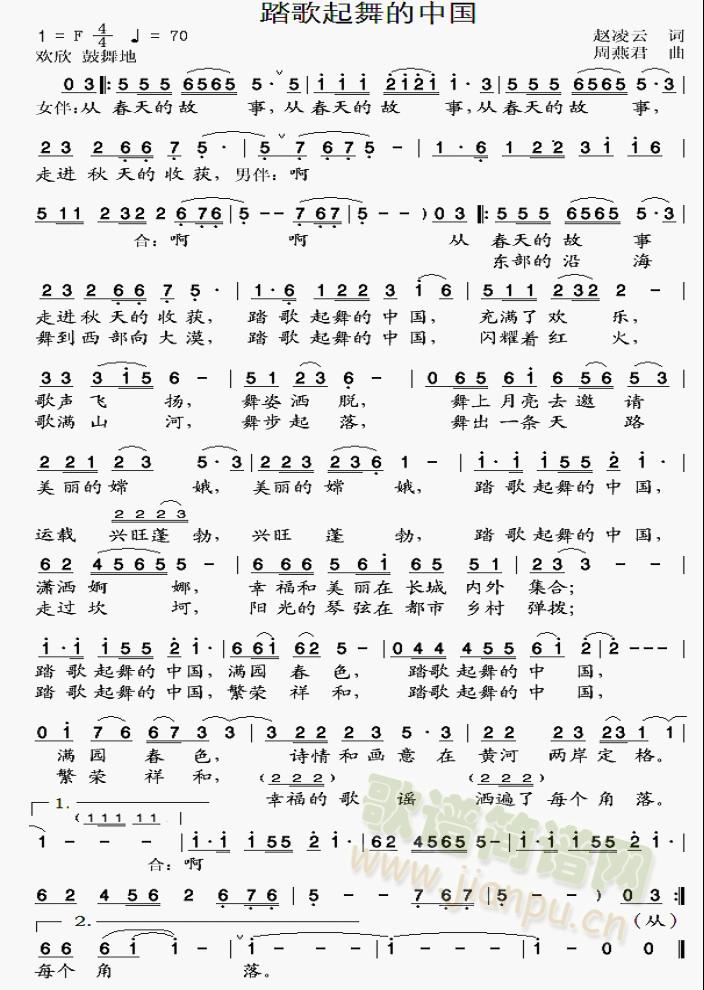 踏歌起舞的中国
1 = F 4/4 ♩ = 70 赵凌云 词
欢欣 鼓舞地 周燕君 曲
0 3 ‖: 5 5 5 6 5 6 5 5 · 5 | i i i 2 i 2 i i · 3 | 5 5 5 6 5 6 5 5 · 3 |
女伴:从 春天的故 事,从春天的故 事,从春天的故 事,
2 3 2 6 6 7 5 · | 5 7 6 7 5 - | 1 · 6 1 2 2 3 i i 6 |
走进 秋天的收获,男伴:啊
5 1 1 2 3 2 2 6 7 6 | 5 - - 7 6 7 | 5 - - ) 0 3 ‖: 5 5 5 6 5 6 5 5 · 3 |
合:啊 啊 从 春天的故 事
东部的沿 海
2 3 2 2 6 6 7 5 · | 1 · 6 1 2 2 3 i 6 | 5 1 1 2 3 2 2 - |
走进秋天的收获, 踏歌起舞的中国, 充满了欢 乐,
舞到西部向大漠, 踏歌起舞的中国, 闪耀着红 火,
3 3 3 i 5 6 - | 5 1 2 3 6 - | 0 6 5 6 i 6 5 6 5 3 |
歌声飞 扬, 舞姿洒 脱, 舞上月亮去邀 请
歌满山 河, 舞步起 落, 舞出一条天 路
2 2 1 2 3 5 · 3 | 2 2 3 2 3 6 1 - | i · i i 5 5 2 i · |
美丽的嫦 娥,美丽的嫦 娥, 踏歌起舞的中国,
2 2 2 3
运载 兴旺蓬 勃,兴旺 蓬 勃, 踏歌起舞的中国,
6 2 4 5 6 5 5 - | 6 6 6 5 6 i 6 5 5 1 | 2 3 3 - - |
潇洒婀 娜, 幸福和美丽在长城 内外 集合;
走过坎 坷, 阳光的琴弦在都市 乡村 弹拨;
i · i i 5 5 2 i · | 6 6 i 6 2 5 - | 0 4 4 4 5 5 6 i 2 | 2 - - - |
踏歌起舞的中国,满园春 色, 踏歌起舞的中 国,
踏歌起舞的中国,繁荣祥 和, 踏歌起舞的中 国,
0 i 7 6 6 7 3 3 | 3 2 2 2 3 5 · 3 | 2 2 2 3 2 3 1 | 1 · |
满园 春 色, 诗情和画意在 黄河 两岸定 格。
繁荣 祥 和, (2 2 2) (2 2 2)
幸福的歌 谣 洒遍了每个角 落。
1. (1 1 1 1 1 |
1 - - - | i · i i 5 5 2 i · | 6 2 4 5 6 5 5 - | i · i i 5 5 2 i · |
合:啊
6 2 4 5 6 2 6 7 6 | 5 - - 7 6 7 | 5 - - ) 0 3 :‖
2. (从)
6 6 6 i i - | i - - - | i - - - | 1 - 0 0 ‖
每个角 落。
歌谱简谱网
www.jianpu.cn